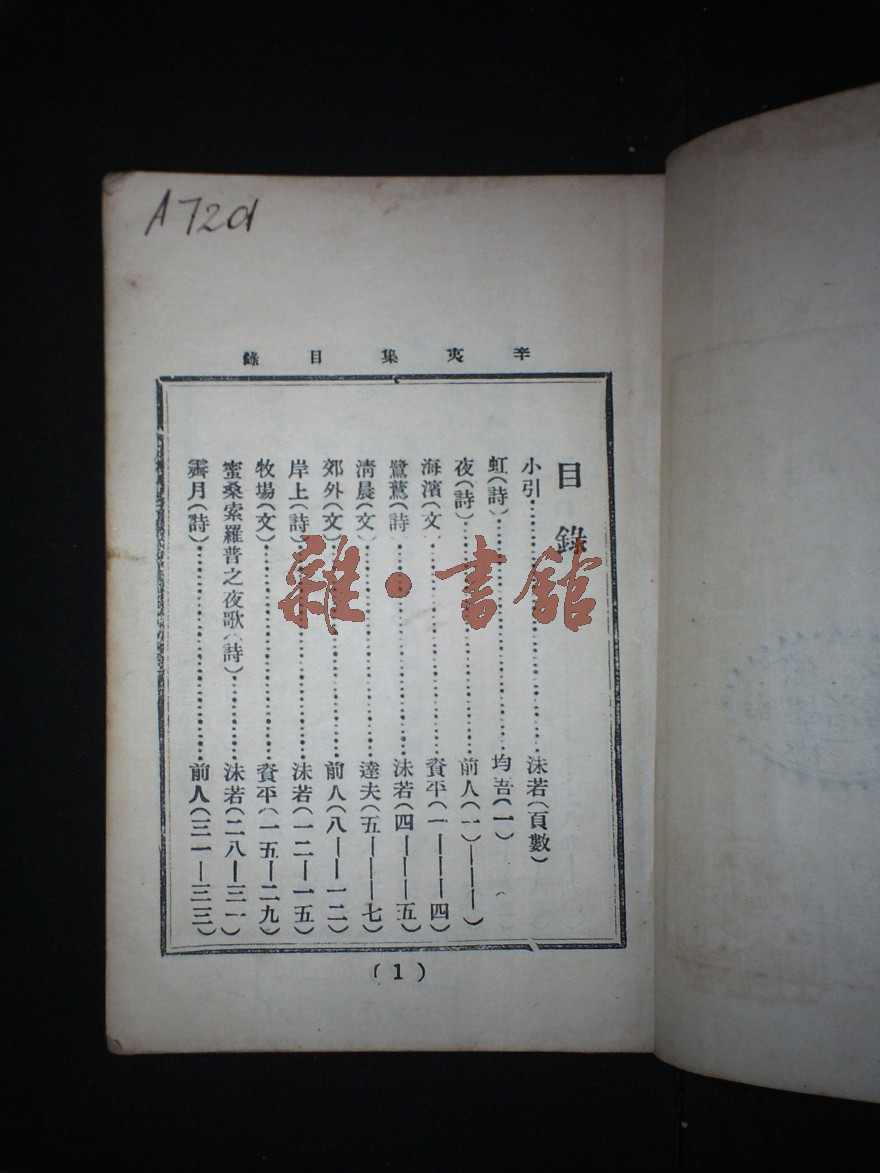 A72d
辛夷集目錄
目錄
小引……………………沫若(頁數)
虹(詩)……………………均吾(一)
夜(詩)……………………前人(一)——
海濱(文)……………………資平(一——四)
鷺鷥(詩)……………………沫若(四——五)
清晨(文)……………………達夫(五——七)
郊外(文)……………………前人(八——一二)
岸上(詩)……………………沫若(一二—一五)
牧場(文)……………………資平(一五—二九)
蜜桑索羅普之夜歌(詩)…………沫若(二八—三一)
霽月(詩)……………………前人(三一—三三)
(1)
雜·書館